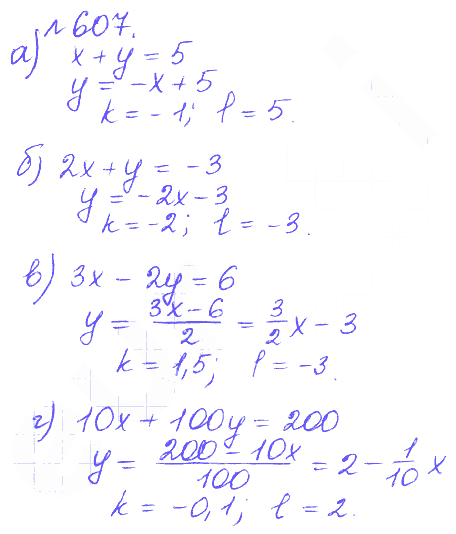 № 607.
а) x + y = 5
y = -x + 5
k = -1; l = 5.
б) 2x + y = -3
y = -2x - 3
k = -2; l = -3.
в) 3x - 2y = 6
y = (3x - 6)/2 = 3/2 x - 3
k = 1,5; l = -3.
г) 10x + 100y = 200
y = (200 - 10x)/100 = 2 - 1/10 x
k = -0,1; l = 2.